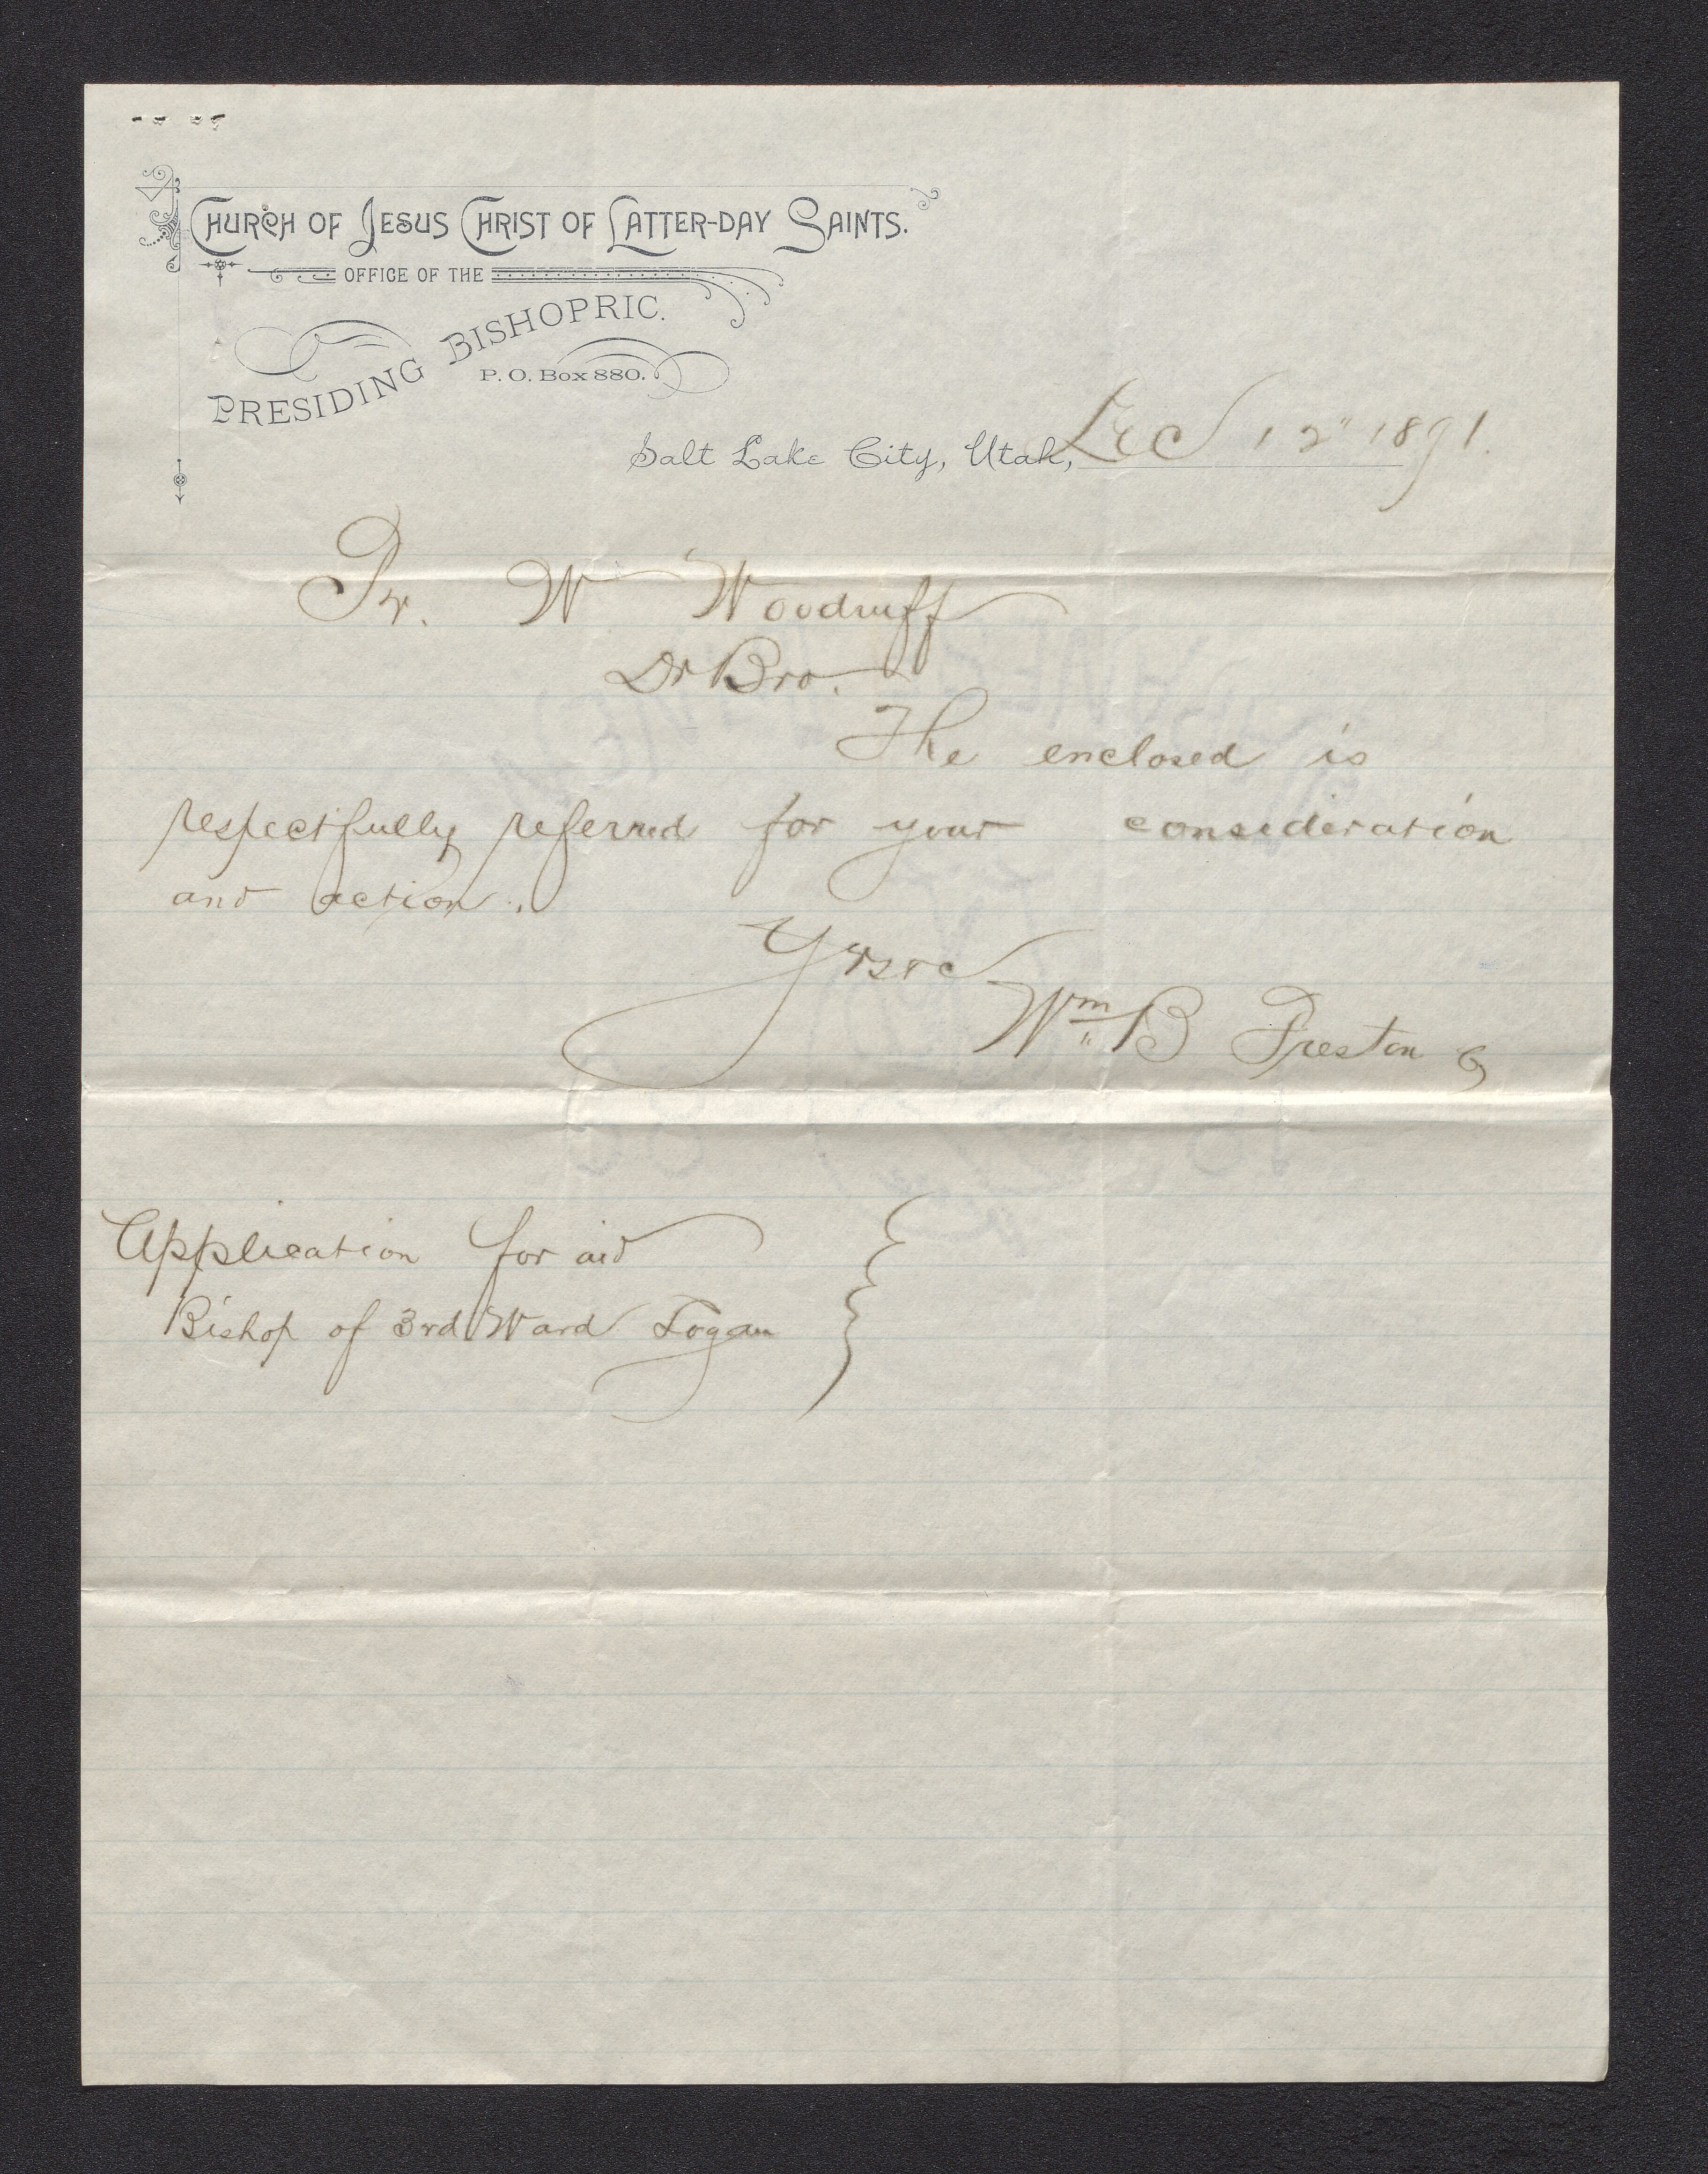 CHURCH OF JESUS CHRIST OF LATTER-DAY SAINTS.
OFFICE OF THE
PRESIDING BISHOPRIC.
P. O. Box 880.
Salt Lake City, Utah, Dec 12" 1891.
Pr. W Woodruff
Dr Bro.
The enclosed is
respectfully referred for your consideration
and action.
Yrs &c
Wm B Preston
Application for aid
Bishop of 3rd Ward Logan